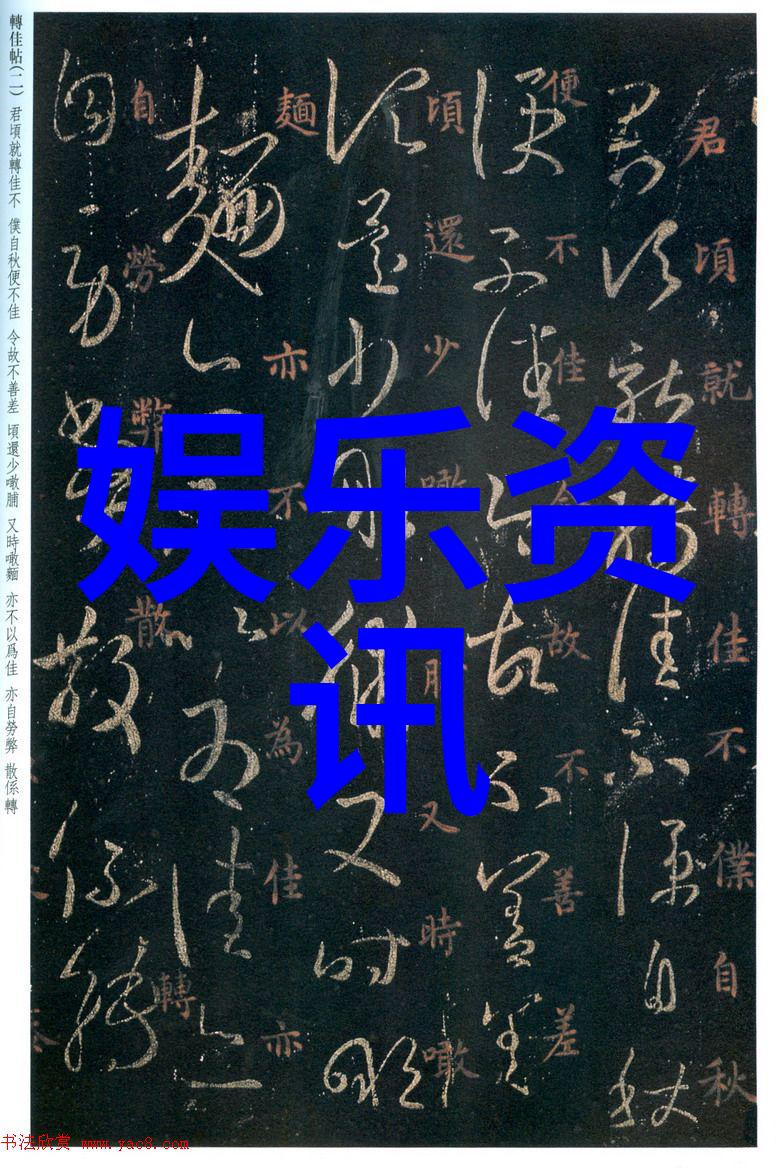 娱乐资
讯
君頃就轉佳不僕自秋
便不佳今故不善差
頃還少噉脯又時噉
麵亦不以為佳亦
自勞弊散係轉
轉佳帖(二) 君頃就轉佳不 僕自秋便不佳 令故不善差 頃還少噉脯 又時噉麵 亦不以爲佳 亦自勞弊 散係轉
书法欣赏 www.yac8.com